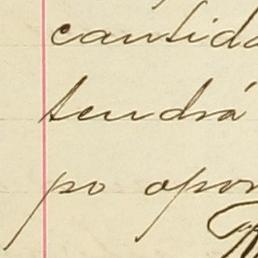 cantida
tendrá
po opor